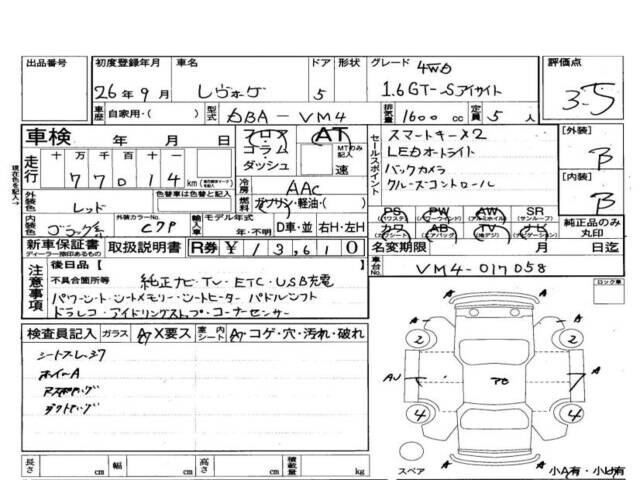 出品番号 初度登録年月 車名 ドア 形状 グレード 評価点
26年9月 レヴォーグ 5 4WD 1.6GT-Sアイサイト 3.5
車歴 自家用・( ) 型式 DBA-VM4 排気量 1600 cc 定員 5 人
車検 年 月 日 フロア コラム・ダッシュ AT MTのみ記入 速
走行 十万 千 百 十 一 77014 km
冷房 AAC
燃料 ガソリン・軽油・( )
外装色 レッド 色替車は色替前色
内装色 ブラック系 外装カラーNo. C7P 輸入車 モデル年式 年・不明 D車・並 右H・左H
新車保証書 ディーラー捺印あるもの 取扱説明書 R券 ¥13,610
セールスポイント スマートキー×2
LEDオートライト
バックカメラ
クルーズコントロール
PS (パワステ) PW (パワーウィンド) AW (アルミホイル) SR (サンルーフ)
カワ (カワシート) AB (エアバッグ) TV (地デジ) ナビ (ナビゲーション)
純正品のみ丸印
[外装] B
[内装] B
名変期限 月 日迄
車台No. VM4-017058
現在色を記入→
注意事項 後日品 [ ]
不具合箇所等 純正ナビ・TV・ETC・USB充電
パワーシート・シートメモリー・シートヒーター パドルシフト
ドラレコ・アイドリングストップ・コーナーセンサー
検査員記入 ガラス A X要ス 室内シート A コゲ・穴・汚れ・破れ
シートスレ・シワ
ホイールA
ロック車
A A
2 2
AU PB A
4 4
A A
スペア 小A有・小U有
長さ cm 幅 cm 高さ cm 積載量 kg